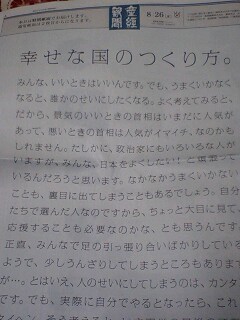 産経新聞
8/26(火)
幸せな国のつくり方。
みんな、いいときはいいんです。でも、うまくいかなく
なると、誰かのせいにしたくなる。よく考えてみると、
だから、景気のいいときの首相はいまだに人気が
あって、悪いときの首相は人気がイマイチ、なのかも
しれません。たしかに、政治家にもいろいろな人が
いますが、みんな、日本をよくしたい!と
いるんだろうと思います。なかなかうまくいかない
ことも、裏目に出てしまうこともあるでしょう。自分
たちで選んだ人なのですから、ちょっと大目に見て、
応援することも必要なのかな、とも思うんです。
正直、みんなで足の引っ張り合いばかりしている
ようで、少しうんざりしてしまうところもあります
が…。とはいえ、人のせいにしてしまうのは、カンタン
です。でも、実際に自分でやるとなったら、これ